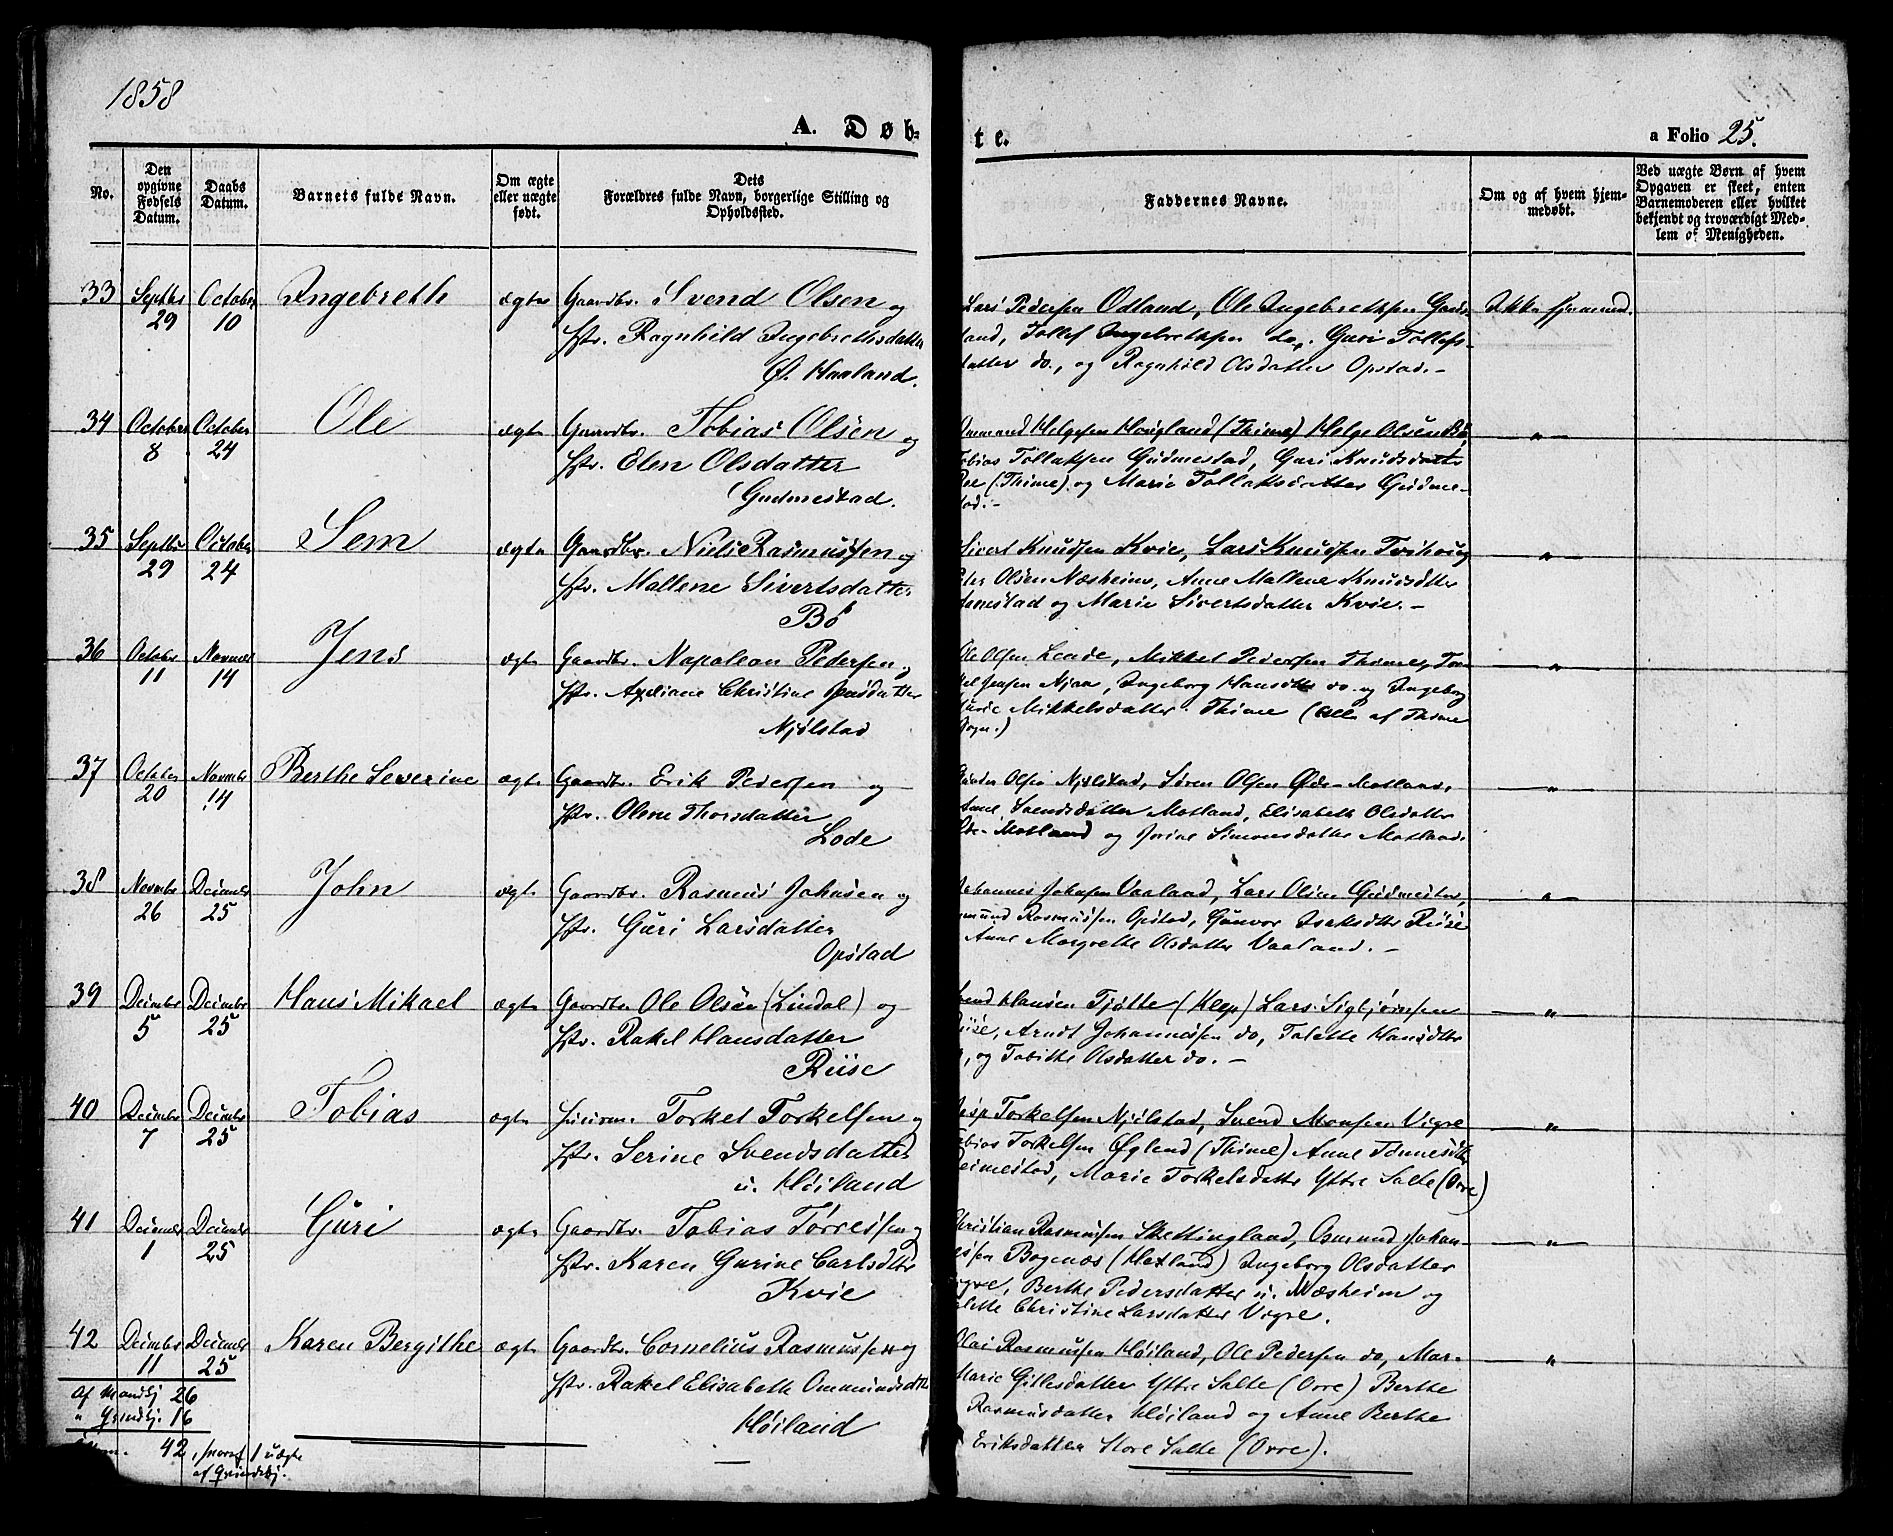 1858
A. Døb-
te.
a Folio 25.
No.
Den opgivne Fødsels Datum.
Daabs Datum.
Barnets fulde Navn.
Om ægte eller uægte født.
Dets Forældres fulde Navn, borgerlige Stilling og Opholdssted.
Faddernes Navne.
Om og af hvem hjemmedøbt.
Ved uægte Børn af hvem Opgaven er skeet, enten Barnemoderen eller hvilket bekjendt og troværdigt Medlem af Menigheden.
33 Septbr 29 October 10 Ingebreth ægte Gaardbr. Svend Olsen og
Hstr. Ragnhild Ingebrethsdatter
Ø. Haaland.
Lars Pedersen Odland, Ole Ingebrethsen
land, Tollef Ingebrethsen do, Guri Tollefs-
datter do, og Ragnhild Olsdatter Opstad. -
Ikke hjemmed.
34 October 8 October 24 Ole ægte Gaardbr. Tobias Olsen og
Hstr. Elen Olsdatter
Gudmestad.
Ommund Helgesen Haugland (Thime) Helge Olsen Bø,
Tobias Tollaksen Gudmestad, Guri Knudsdatter
(Thime) og Marie Tollaksdatter Gudme-
stad. -
— " —
35 Septbr 29 October 24 Sem ægte Gaardbr. Niels Rasmussen og
Hstr. Mallene Sivertsdatter
Bø
Sivert Knudsen Kvie, Lars Knudsen
Peder Olsen Næsheim, Anne Mallene Knudsdtter
og Marie Sivertsdatter Kvie. -
— " —
36 October 11 Novmbr 14 Jens ægte Gaardbr. Napoleon Pedersen og
Hstr. Axeliane Christine Jensdatter
Njølstad
Ole Olsen Lende, Mikkel Pedersen Thime,
Jensen Njaa, Ingeborg Hansdtter do og Ingeborg
Mikkelsdatter Thime (alle af Thime
Sogn.)
— " —
37 October 20 Novmbr 14 Berthe Severine ægte Gaardbr. Erik Pedersen og
Hstr. Olene Thorsdatter
Lode
Olsen Njølstad, Søren Olsen Øde-Motland,
Anne Svendsdatter Motland, Elisabeth Olsdatter
Øde-Motland og Jorine Simonsdatter Motland.
— " —
38 Novmbr 26 Decmbr 25 John ægte Gaardbr. Rasmus Johnsen og
Hstr. Guri Larsdatter
Opstad
Johannes Johnsen Vaaland, Lars Olsen Gudmestad,
Rasmussen Opstad, Gunvor Isaksdtter Riise
Anne Margrethe Olsdatter Vaaland. -
— " —
39 Decmbr 5 Decmbr 25 Hans Mikael ægte Gaardbr. Ole Olsen (Lindal) og
Hstr. Rakel Hansdatter
Riise
Svend Hansen Tjøtte (Klep) Lars Sigbjørnsen
Riise, Arndt Johannessen do, Talette Hansdtter
og Tobithe Olsdatter do. -
— " —
40 Decmbr 7 Decmbr 25 Tobias ægte Huusm. Torkel Torkelsen og
Hstr. Serine Svendsdatter
u. Høiland
Torkelsen Njølstad, Svend Monsen Vigre
Tobias Torkelsen Øglend (Thime) Anne Tønnesdtter
Reimestad, Marie Torkelsdatter Yttre Salte (Orre)
— " —
41 Decmbr 1 Decmbr 25 Guri ægte Gaardbr. Tobias Torressen og
Hstr. Karen Gurine Carlsdtter
Kvie
Christian Rasmussen Skettingland, Osmund Johan-
nessen Bogenæs (Hetland) Ingeborg Olsdatter
Vigre, Berthe Pedersdatter u. Næsheim og
Christine Larsdatter Vigre.
— " —
42 Decmbr 11 Decmbr 25 Karen Bergithe ægte Gaardbr. Cornelius Rasmussen og
Hstr. Rakel Elisabeth Ommundsdtter
Høiland
Olai Rasmussen Høiland, Ole Pedersen do, Mar-
Marie Gillesdatter Yttre Salte (Orre) Berthe
Rasmusdatter Høiland og Anne Berthe
Eriksdatter Store Salte (Orre).
— " —
Af Mandkj 26
" Qvindkj. 16
42, hvoraf 1 uægte
af Qvindekj.